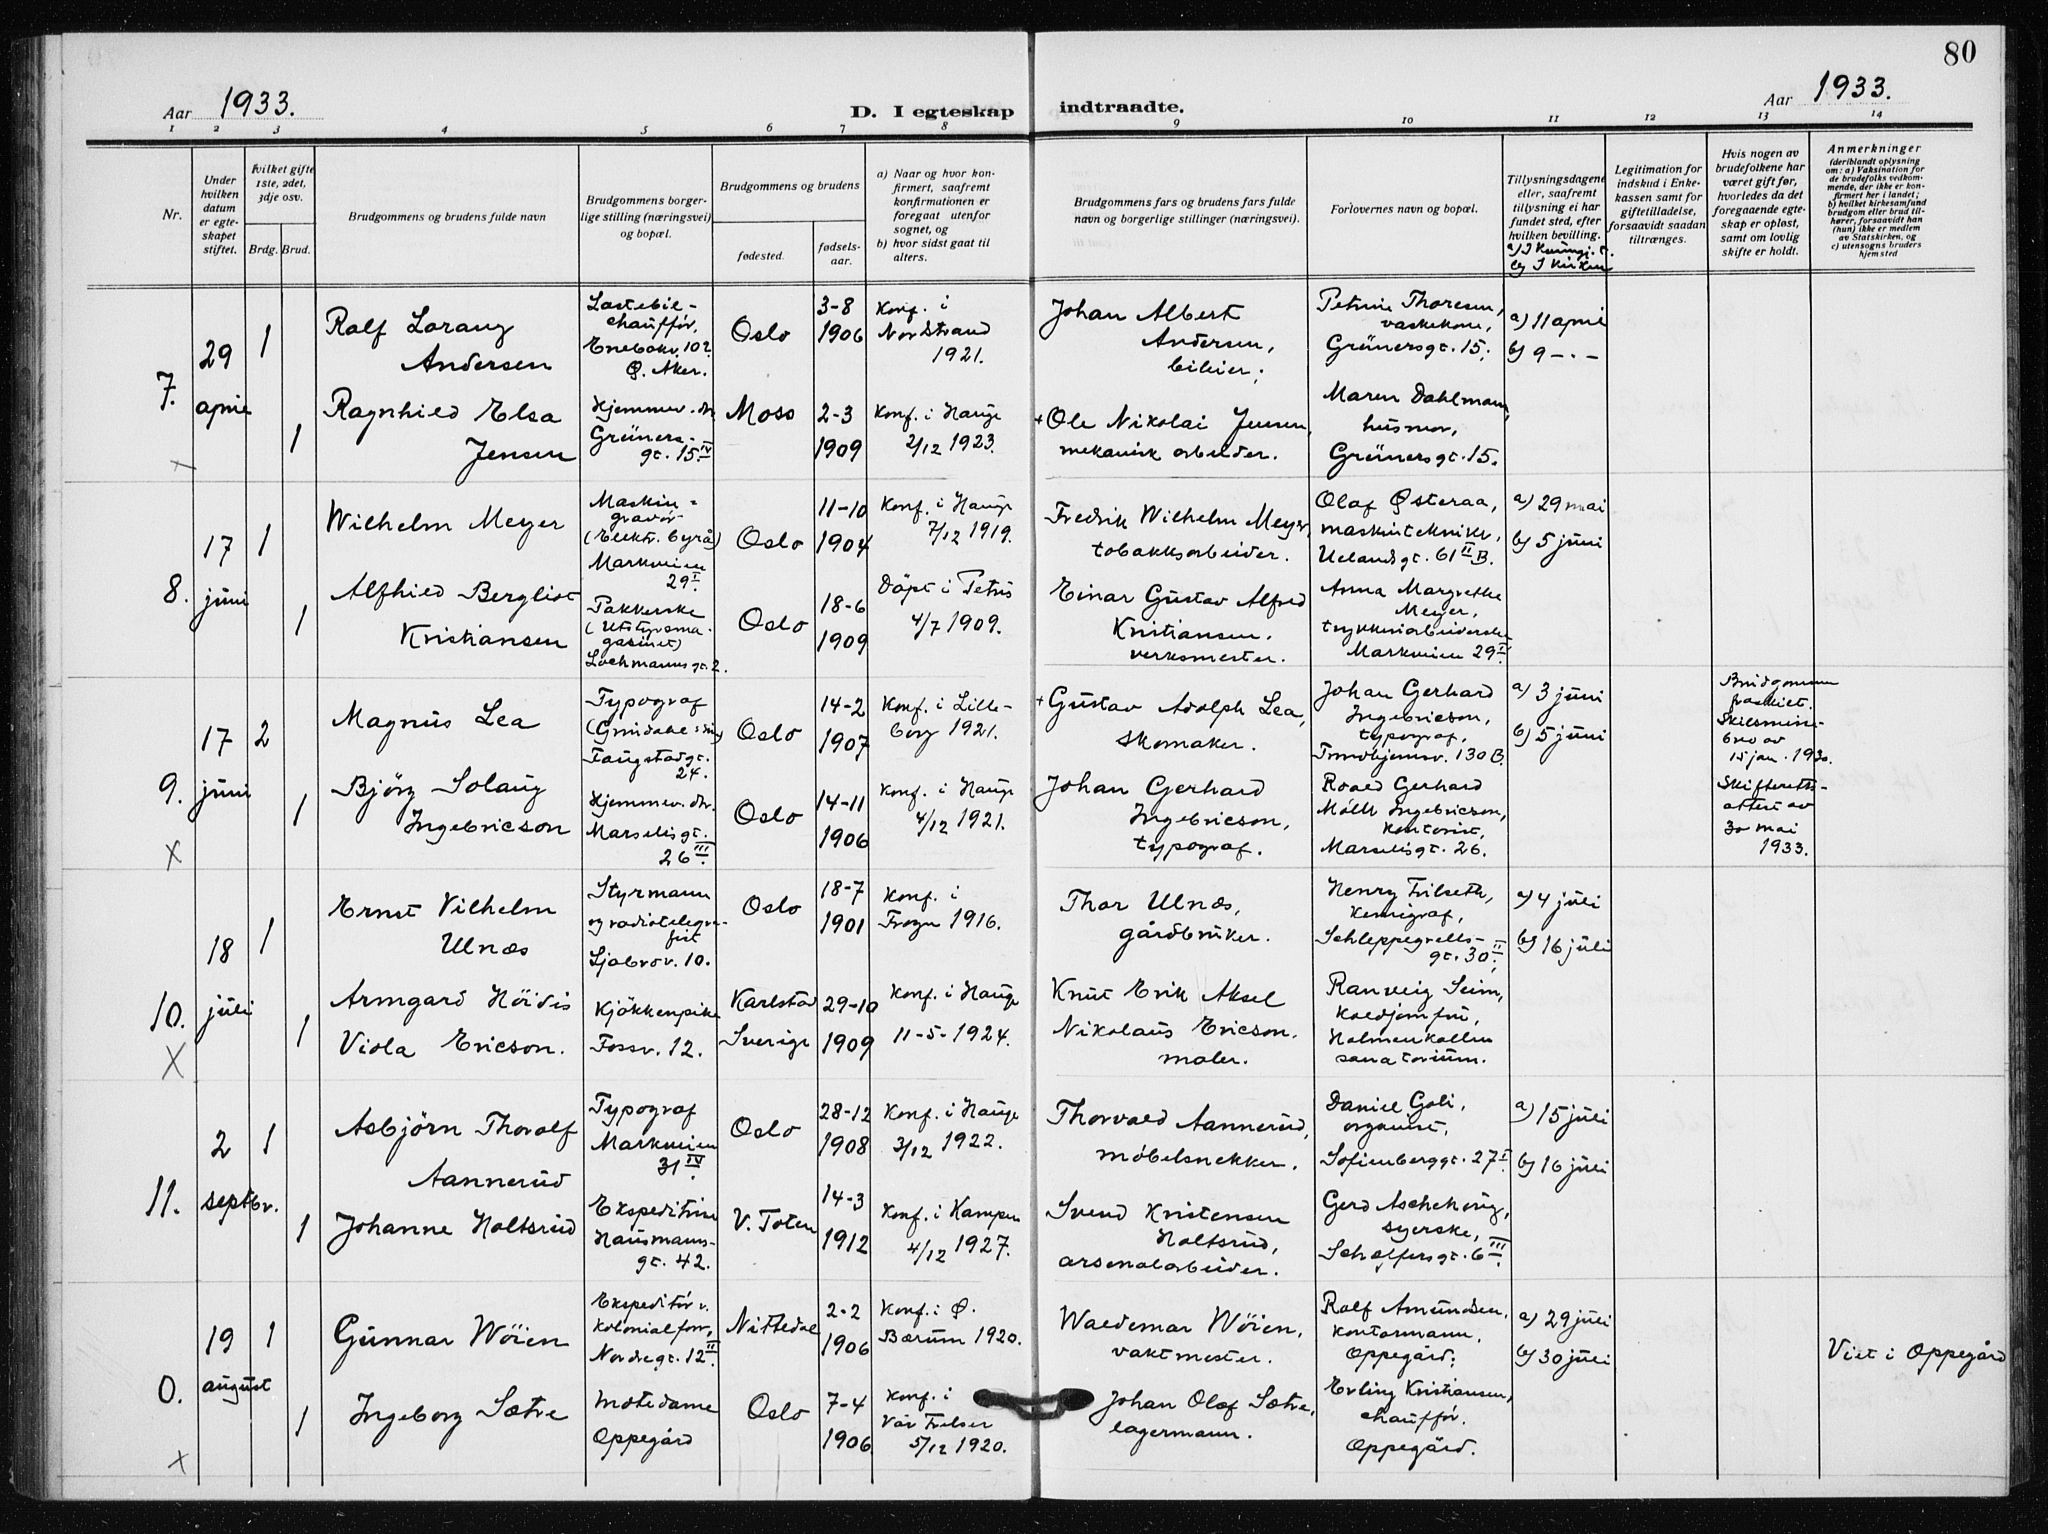 80
Aar 1933.
D. I egteskap indtraadte.
Aar 1933.
1 2 3 4 5 6 7 8 9 10 11 12 13 14
Nr.
Under hvilken datum er egteskapet stiftet.
hvilket gifte 1ste, 2det, 3dje osv.
Brdg. Brud.
Brudgommens og brudens fulde navn
Brudgommens borgerlige stilling (næringsvei) og bopæl.
Brudgommens og brudens
fødested.
fødselsaar.
a) Naar og hvor konfirmert, saafremt konfirmationen er foregaat utenfor sognet, og
b) hvor sidst gaat til alters.
Brudgommens fars og brudens fars fulde navn og borgerlige stillinger (næringsvei).
Forlovernes navn og bopæl.
Tillysningsdagene eller, saafremt tillysning ei har fundet sted, efter hvilken bevilling.
b) I Kirken
Legitimation for indskud i Enkekassen samt for giftetilladelse, forsaavidt saadan tiltrænges.
Hvis nogen av brudefolkene har været gift før, hvorledes da det foregaaende egteskap er opløst, samt om lovlig skifte er holdt.
Anmerkninger
(deriblandt oplysning om: a) Vaksination for de brudefolks vedkommende, der ikke er konfirmert her i landet;
b) hvilket kirkesamfund brudgom eller brud tilhører, forsaavidt han (hun) ikke er medlem av Statskirken, og
c) utensogns bruders hjemsted
7.
29 april
1
Ralf Lorang Andersen
Lastebilchauffør,
Enebakv. 102.
Ø. Aker.
Oslo
3-8 1906
Konf. i Nordstrand 1921.
Johan Albert Andersen,
bileier.
Petrine Thoresen,
vaskekone,
Grünersgt. 15.
a) 11 april
b) 9 -"-
1
Ragnhild Elsa Jensen
Hjemmev. dtr.
Grünersgt. 15 IV
Moss
2-3 1909
Konf. i Hauge 2/12 1923.
+ Ole Nikolai Jensen,
mekanisk arbeider.
Maren Dahlmann,
husmor,
Grünersgt. 15.
8.
17 juni
1
Wilhelm Meyer
Maskingravør
(Elektr. byrå)
Markveien 29 I
Oslo
11-10 1904
Konf. i Hauge 7/12 1919.
Fredrik Wilhelm Meyer,
tobakksarbeider.
Olaf Østeraa,
maskintekniker,
Uelandsgt. 61 II B.
a) 29 mai
b) 5 juni
1
Alfhild Bergliot Kristiansen
Pakkerske
(Utstyrsmagasinet)
Lochmannsgt. 2.
Oslo
18-6 1909
Döpt i Petrus 4/7 1909.
Einar Gustav Alfred Kristiansen.
verksmester.
Anna Margrethe Meyer,
trykkeriarbeiderske
Markveien 29 IV.
9.
X
17 juni
2
Magnus Lea
Typograf
Faugstadgt. 24.
Oslo
14-2 1907
Konf. i Lilleborg 1921.
+ Gustav Adolph Lea,
skomaker.
Johan Gerhard Ingebricson,
typograf,
Trondhjemsv. 130 B.
a) 3 juni
b) 5 juni
Brudgommen fraskilt.
Skilsmissebrev av 15 jan. 1930.
Skifterettsattest av 30 mai 1933.
1
Bjørg Solaug Ingebricson
Hjemmev. dtr.
Marselisgt. 26 III.
Oslo
14-11 1906
Konf. i Hauge 4/12 1921.
Johan Gerhard Ingebricson,
typograf.
Roald Gerhard Møllh Ingebricson,
kontorist,
Marselisgt. 26.
10.
X
18 juli
1
Ernst Vilhelm Ulnæs
Styrmann
og radiotelegrafist
Ljabrov. 10.
Oslo
18-7 1901
Konf. i Frogn 1916.
Thor Ulnæs,
gårdbruker.
Henry Trilseth,
kemigraf,
Schleppegrellsgt. 30 II.
a) 4 juli
b) 16 juli
1
Armgard Höidis Viola Ericson.
Kjökkenpike
Fossv. 12.
Karlstad Sverige
29-10 1909
Konf. i Hauge 11-5-1924.
Knut Erik Aksel Nikolaus Ericson.
maler.
Ranveig Seim,
koldjomfru,
Holmenkollen sanatorium.
11.
2 septbr.
1
Asbjörn Thoralf Aannerud
Typograf
Markveien 31 IV.
Oslo
28-12 1908
Konf. i Hauge 3/12 1922.
Thorvald Aannerud,
møbelsnekker.
Daniel Goli,
organist,
Sofienberggt. 27 I.
a) 15 juli
b) 16 juli
1
Johanne Holtsrud
Ekspeditrise
Hausmannsgt. 42.
V. Toten
14-3 1912
Konf. i Kampen 4/12 1927.
Svend Kristensen Holtsrud,
arsenalarbeider.
Gerd Aschehoug,
syerske,
Schæffersgt. 6 III.
0.
x
19 august
1
Gunnar Wöien
Ekspeditör v. kolonialforr.,
Nordregt. 12 II.
Nittedal
2-2 1906
Konf. i Ø. Bærum 1920.
Waldemar Wöien,
vaktmester.
Rolf Amundsen,
kontormann,
Oppegård.
a) 29 juli
b) 30 juli
Viet i Oppegård
1
Ingeborg Sætre
Motedame
Oppegård
Oslo
7-4 1906
Konf. i Vår Frelser 5/12 1920.
Johan Olaf Sætre,
lagermann.
Erling Kristiansen,
chauffør.
Oppegård.